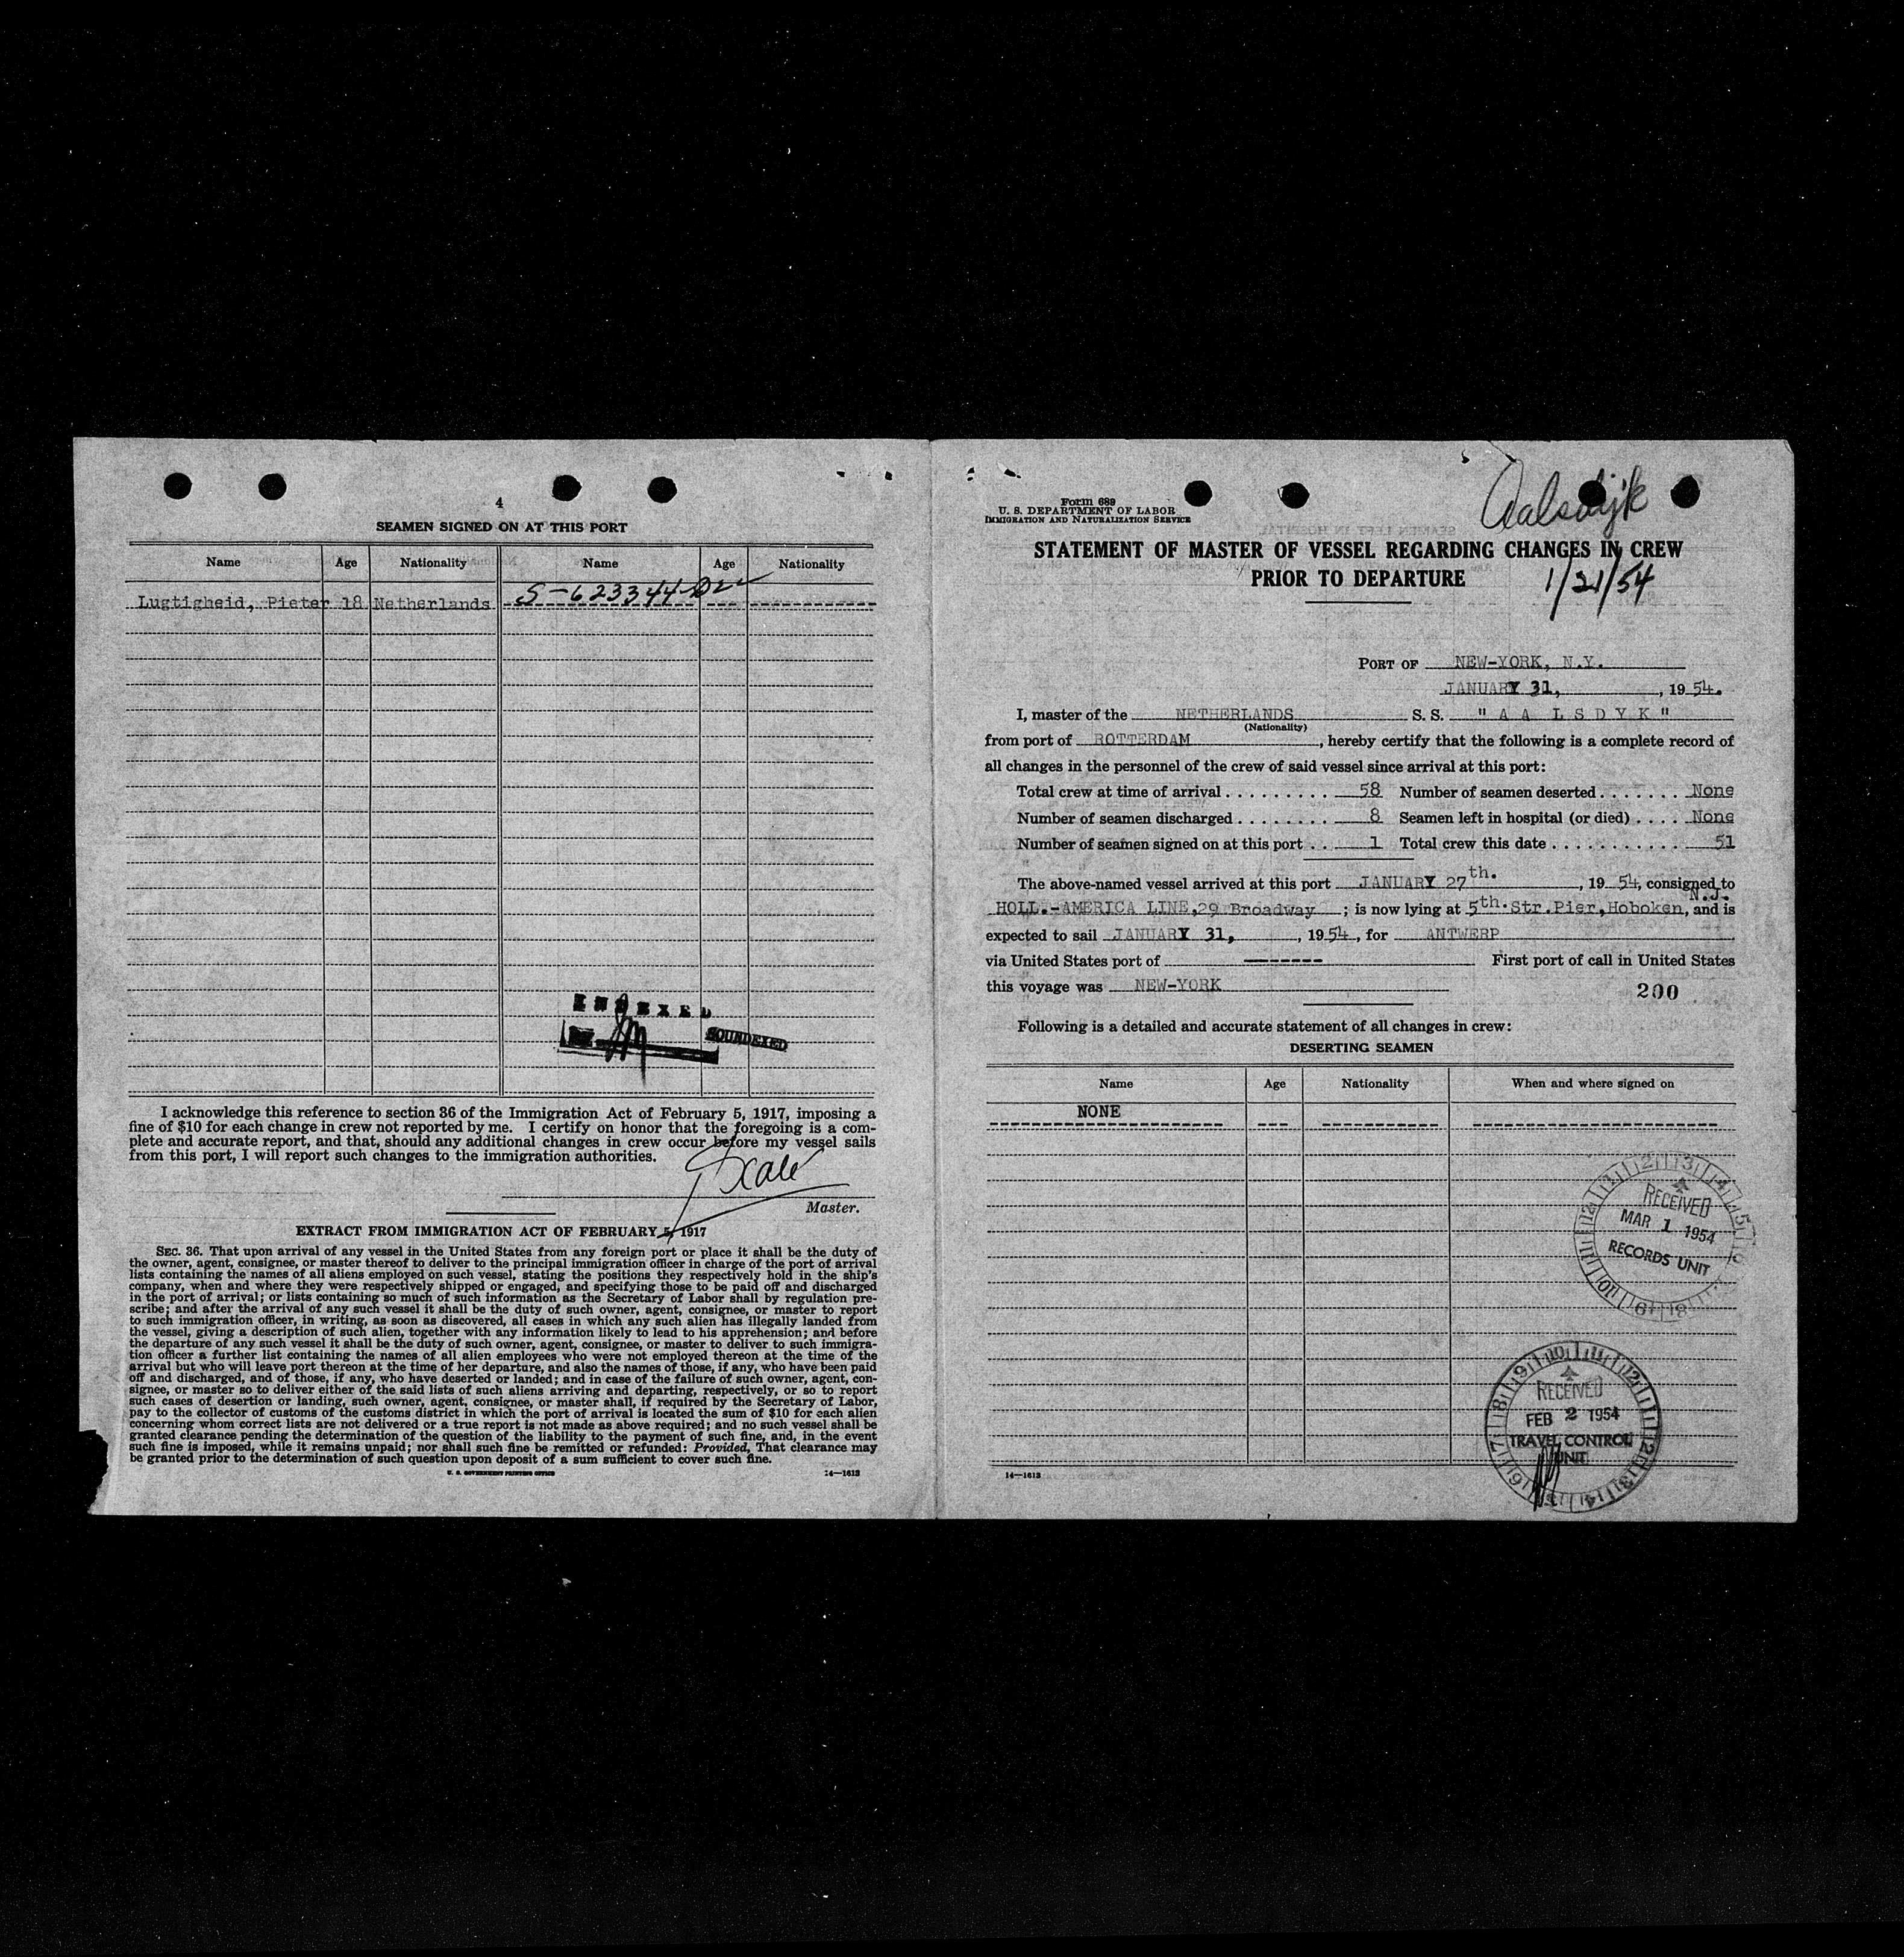 4
SEAMEN SIGNED ON AT THIS PORT
Name Age Nationality Name Age Nationality
Lugtigheid, Pieter 18 Netherlands S-623344
INDEXED
SOUNDEXED
I acknowledge this reference to section 36 of the Immigration Act of February 5, 1917, imposing a
fine of $10 for each change in crew not reported by me. I certify on honor that the foregoing is a com-
plete and accurate report, and that, should any additional changes in crew occur before my vessel sails
from this port, I will report such changes to the immigration authorities.
Master.
EXTRACT FROM IMMIGRATION ACT OF FEBRUARY 5, 1917
SEC. 36. That upon arrival of any vessel in the United States from any foreign port or place it shall be the duty of
the owner, agent, consignee, or master thereof to deliver to the principal immigration officer in charge of the port of arrival
lists containing the names of all aliens employed on such vessel, stating the positions they respectively hold in the ship's
company, when and where they were respectively shipped or engaged, and specifying those to be paid off and discharged
in the port of arrival; or lists containing so much of such information as the Secretary of Labor shall by regulation pre-
scribe; and after the arrival of any such vessel it shall be the duty of such owner, agent, consignee, or master to report
to such immigration officer, in writing, as soon as discovered, all cases in which any such alien has illegally landed from
the vessel, giving a description of such alien, together with any information likely to lead to his apprehension; and before
the departure of any such vessel it shall be the duty of such owner, agent, consignee, or master to deliver to such immigra-
tion officer a further list containing the names of all alien employees who were not employed thereon at the time of the
arrival but who will leave port thereon at the time of her departure, and also the names of those, if any, who have been paid
off and discharged, and of those, if any, who have deserted or landed; and in case of the failure of such owner, agent, con-
signee, or master so to deliver either of the said lists of such aliens arriving and departing, respectively, or so to report
such cases of desertion or landing, such owner, agent, consignee, or master shall, if required by the Secretary of Labor,
pay to the collector of customs of the customs district in which the port of arrival is located the sum of $10 for each alien
concerning whom correct lists are not delivered or a true report is not made as above required; and no such vessel shall be
granted clearance pending the determination of the question of the liability to the payment of such fine, and, in the event
such fine is imposed, while it remains unpaid; nor shall such fine be remitted or refunded: Provided, That clearance may
be granted prior to the determination of such question upon deposit of a sum sufficient to cover such fine.
U. S. GOVERNMENT PRINTING OFFICE 14—1613
Form 689
U. S. DEPARTMENT OF LABOR
IMMIGRATION AND NATURALIZATION SERVICE
Aalsdijk
STATEMENT OF MASTER OF VESSEL REGARDING CHANGES IN CREW
PRIOR TO DEPARTURE
1/21/54
PORT OF NEW-YORK, N.Y.
JANUARY 31, , 19 54.
I, master of the NETHERLANDS S. S. " A A L S D Y K "
(Nationality)
from port of ROTTERDAM , hereby certify that the following is a complete record of
all changes in the personnel of the crew of said vessel since arrival at this port:
Total crew at time of arrival . . . . . . . . . . 58 Number of seamen deserted . . . . . . . None
Number of seamen discharged . . . . . . . . 8 Seamen left in hospital (or died) . . . . None
Number of seamen signed on at this port . . 1 Total crew this date . . . . . . . . . . . 51
The above-named vessel arrived at this port JANUARY 27th. , 19 54, consigned to
HOLL.-AMERICA LINE, 29 Broadway ; is now lying at 5th. Str. Pier, Hoboken, N.J. and is
expected to sail JANUARY 31, , 19 54 , for ANTWERP
via United States port of ------- First port of call in United States
this voyage was NEW-YORK
200
Following is a detailed and accurate statement of all changes in crew:
DESERTING SEAMEN
Name Age Nationality When and where signed on
NONE
RECEIVED
MAR 1 1954
RECORDS UNIT
RECEIVED
FEB 2 1954
TRAVEL CONTROL
UNIT
14—1613